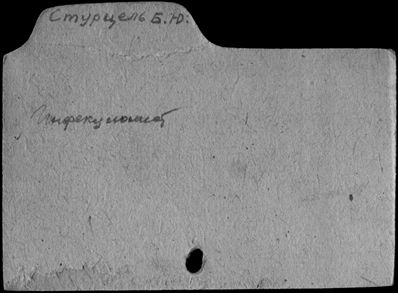 Стурцель Б.Ю.
Инфекционист